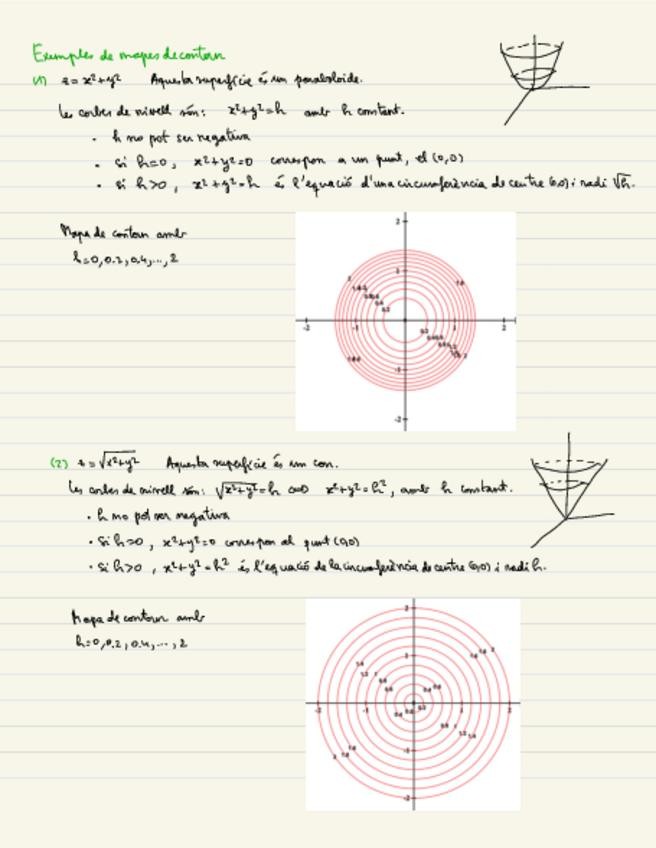 Exemples de mapes de contorn
(1) z = x²+y² Aquesta superfície és un paraboloide.
Les corbes de nivell són: x²+y²=h amb h constant.
· h no pot ser negativa
· si h=0, x²+y²=0 correspon a un punt, el (0,0)
· si h>0, x²+y²=h és l'equació d'una circumferència de centre (0,0) i radi √h.
Mapa de contorn amb
h=0,0.2,0.4,...,2
(2) z = √x²+y² Aquesta superfície és un con.
Les corbes de nivell són: √x²+y²=h ⇔ x²+y²=h², amb h constant.
· h no pot ser negativa
· si h=0, x²+y²=0 correspon al punt (0,0)
· si h>0, x²+y²=h² és l'equació de la circumferència de centre (0,0) i radi h.
Mapa de contorn amb
h=0,0.2,0.4,...,2